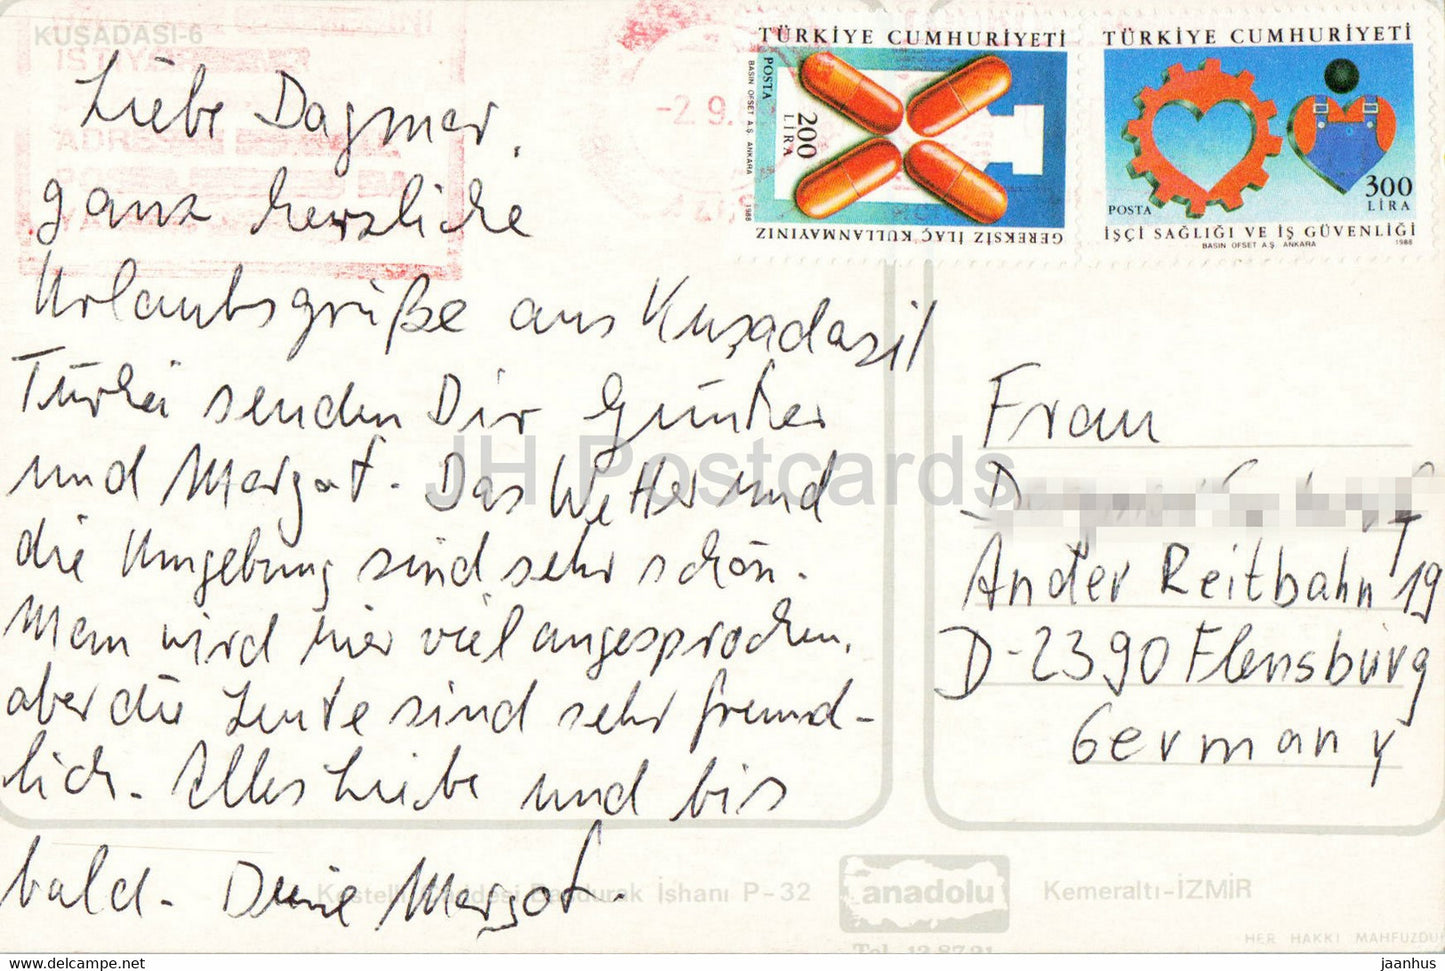 KUŞADASI-6
Liebe Dagmar,
ganz herzliche
Urlaubsgrüße aus Kuşadasi/
Türkei senden Dir Günther
und Margot. Das Wetter und
die Umgebung sind sehr schön.
Man wird hier viel angesprochen,
aber die Leute sind sehr freund-
lich. Alles Liebe und bis
bald. Deine Margot.
-2.9.
TÜRKİYE CUMHURİYETİ
POSTA
200
LİRA
BASIN OFSET A.Ş. ANKARA 1988
GEREKSİZ İLAÇ KULLANMAYINIZ
TÜRKİYE CUMHURİYETİ
300
LİRA
POSTA
İŞÇİ SAĞLIĞI VE İŞ GÜVENLİĞİ
BASIN OFSET A.Ş. ANKARA 1988
Frau
An der Reitbahn 19
D-2390 Flensburg
Germany
JH Postcards
Kestelli Caddesi İşhanı P-32
anadolu
Kemeraltı-İZMİR
Tel. 13 87 21
HER HAKKI MAHFUZDUR
www.delcampe.net
jaanhus